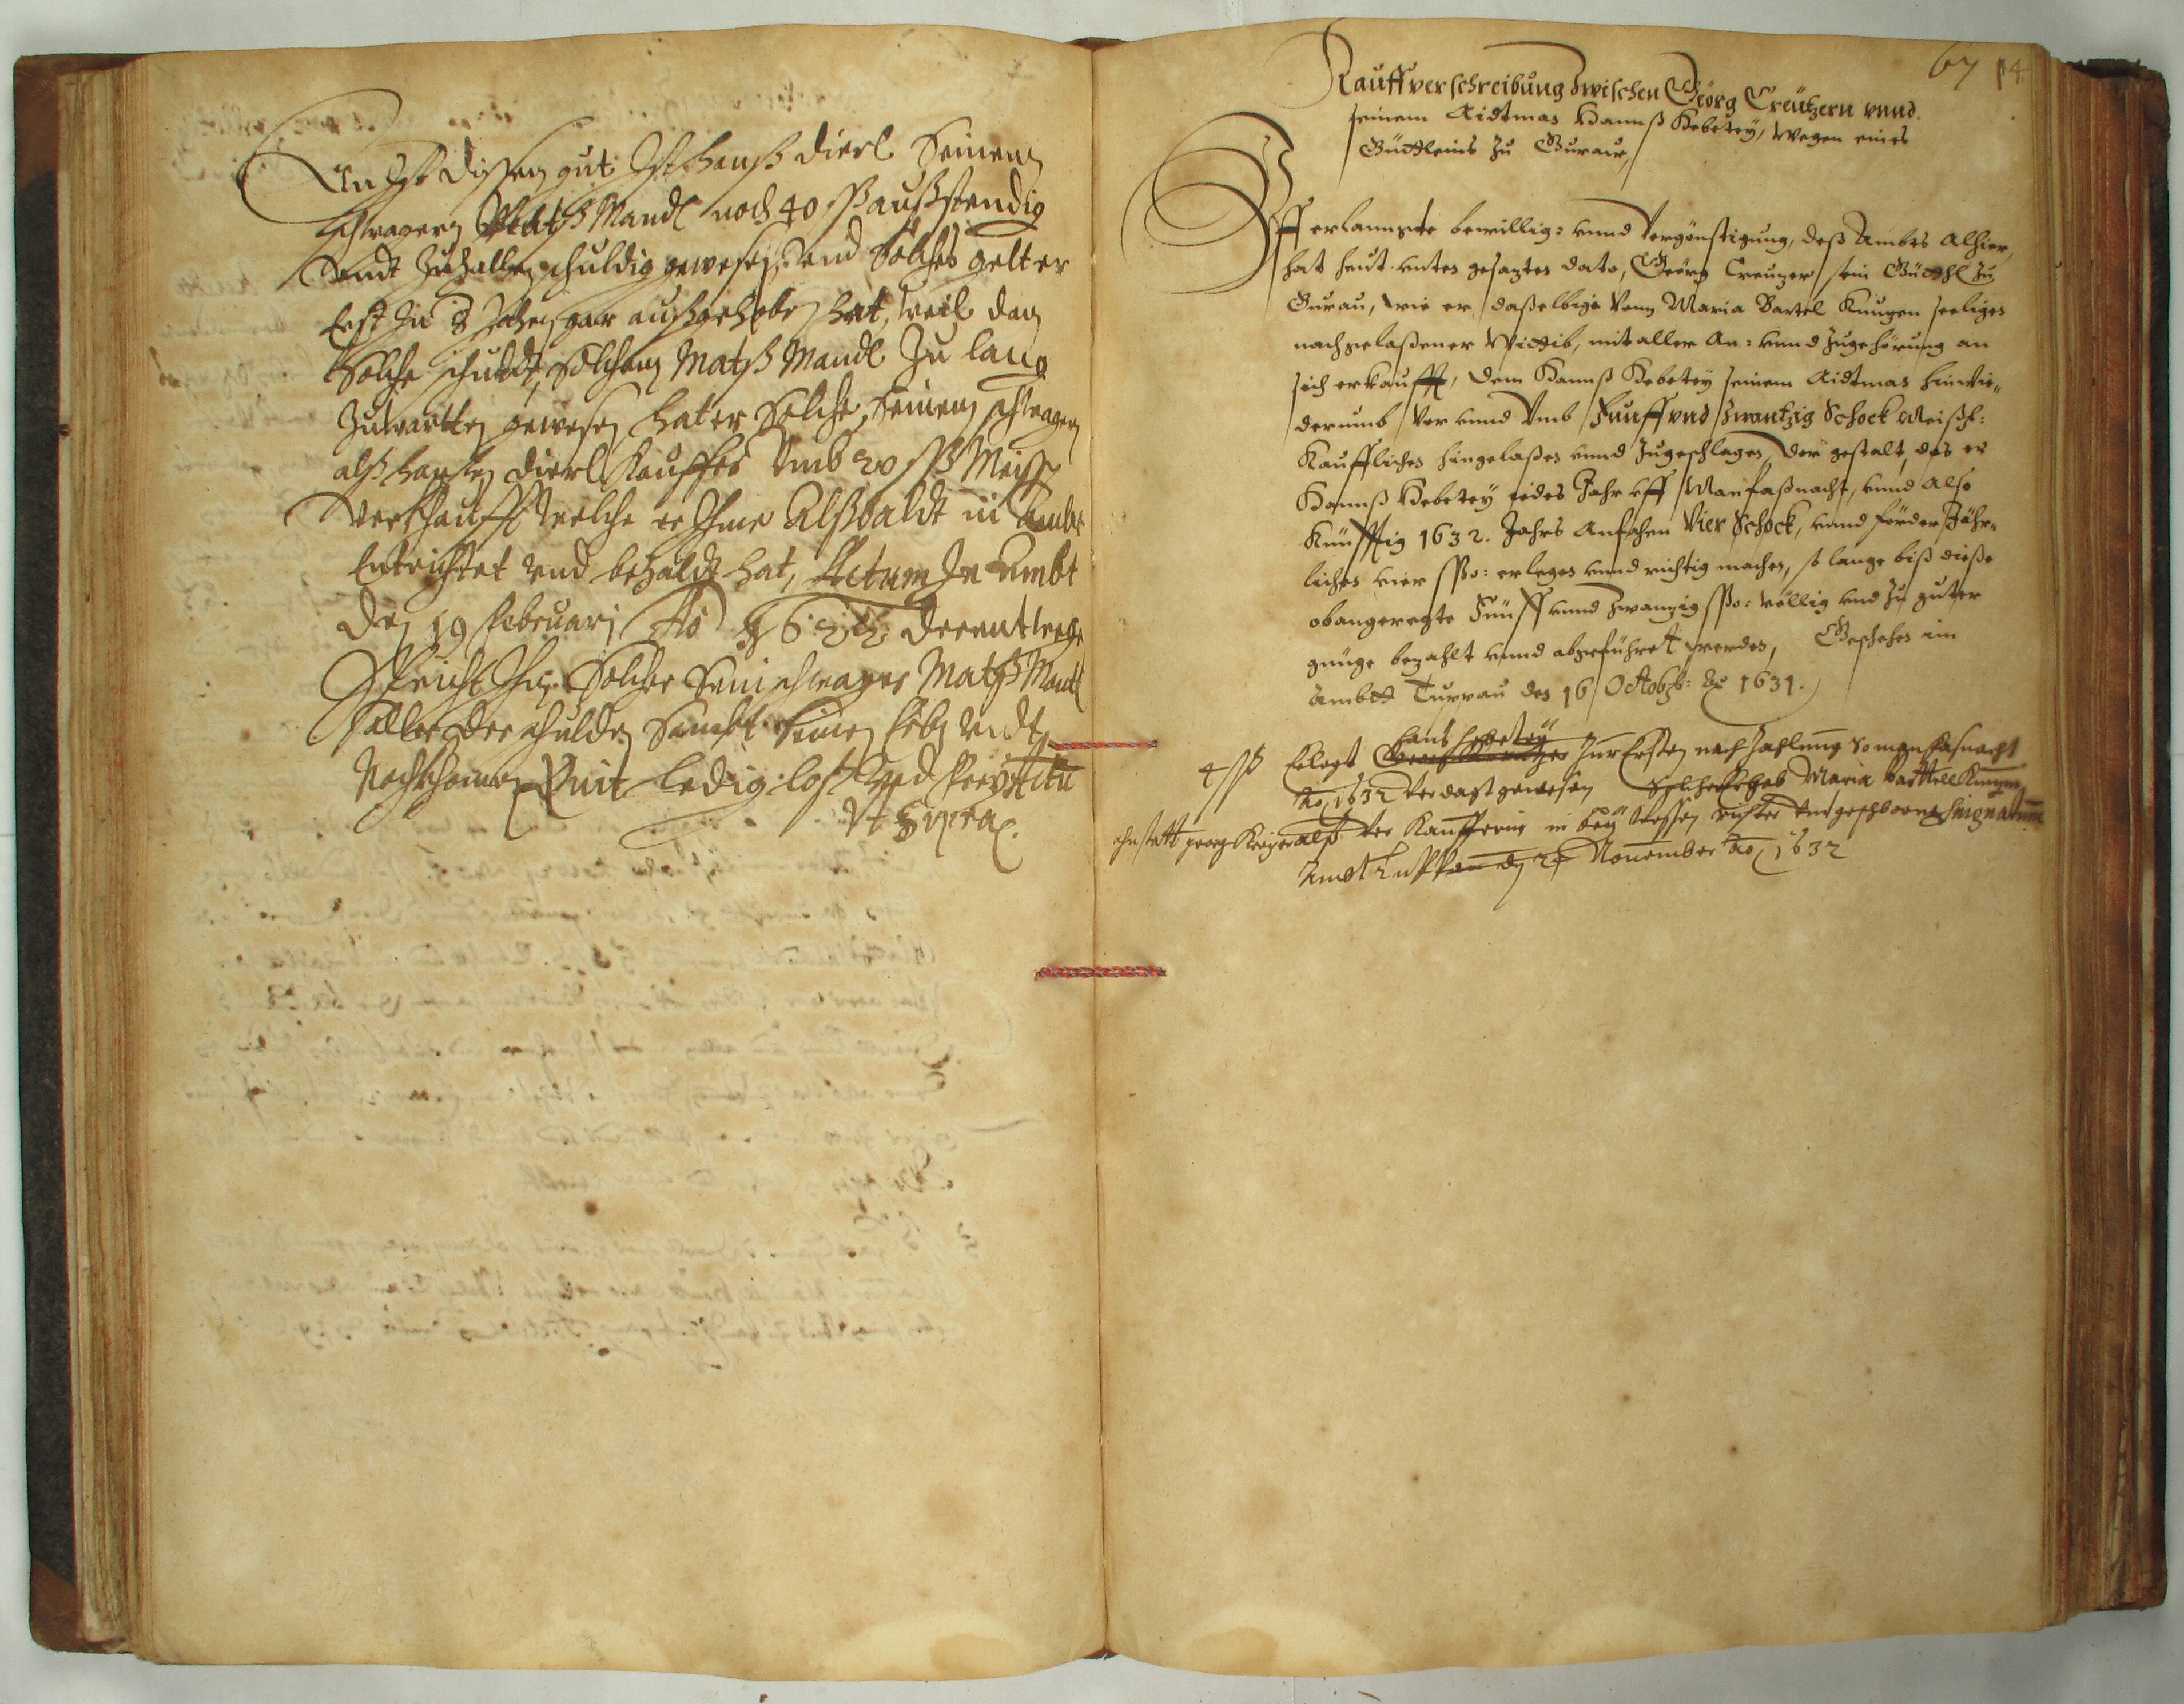 An Jst dissen gut Jst hanß dierl Seinem
schwagern Matß Mandl noch 40 ß außstendig
vndt Zuzallen schuldig gewesen, vnd Solches gelt er
Erst Jn 8 Jahrn gar außzuheben hat, weil dan
Solche schuldt, Solchem Matß Mandl Zu lang
Zuwartten gewesen hat er Solche Seinem schwagern
alß hansen dierl Kauffer vmb 20 ß Meiss
verkhaufft welche er Jhme Alßbaldt in Ambt
Entrichtet vnd bezaldt hat, Actum Jn Ambt
den 19 Februarj Ao derentwegen
Spricht Jhn Solcher Sein schwager Matß Mandl
Solcher schulden Sambt seinen Erben vndt
Nachkhomen Quit ledig loß vnd frey Actu
Vt Supra.
67 14
Kauffverschreibung Zwischen Geörg Creützern vnnd
seinem Aidtman Hannß Hebetey, wegen eines
Güettleins Zu Guraw,
Vff erlanngte bewillig: vnnd Vergönstigung, deß Ambts Alhier,
hat heut vnten gesagten dato, Geörg Creuzer sein Güettl zu
Gurau, wie er daßelbige Vonn Maria Bartel Knugen seeligen
nachgelaßener Wittib, mit aller An: vnnd Zugehörung an
sich erkaufft, dem Hannß Hebetey seinem Aidtman hinwie„
derumb Vor vnnd Vmb Fünff vnd Zwantzig Schock Meißn:
Kaufflichen hingelaßen vnnd Zugeschlagen, der gestalt, das er
Hannß Hebetey iedes Jahr vff Manfaßnacht, vnnd Also
Künfftig 1632. Jahrs Anfahen Vier Schock, vnnd förder Jähr„
lichen vier ßo: erlegen vnnd richtig machen, so lange biß dieße
obangeregte Fünff vnnd Zwanzig ßo: völlig vnd Zu guter
gnüge bezahlt vnnd abgeführet werden, Geschehen im
Ambtt Tussau den 16 Octobr: Ao 1631.
hans Hebetey
4 ß Erlegt Zur Ersten nach Zahlung so manfasnacht
Ao 1632 verdagt gewesen Maria barttell Knugen
ahn statt georg Kreizer alß der Kaufferin in bey wessen richter vnd geschworne Signatum
Ambt den November Ao 1632